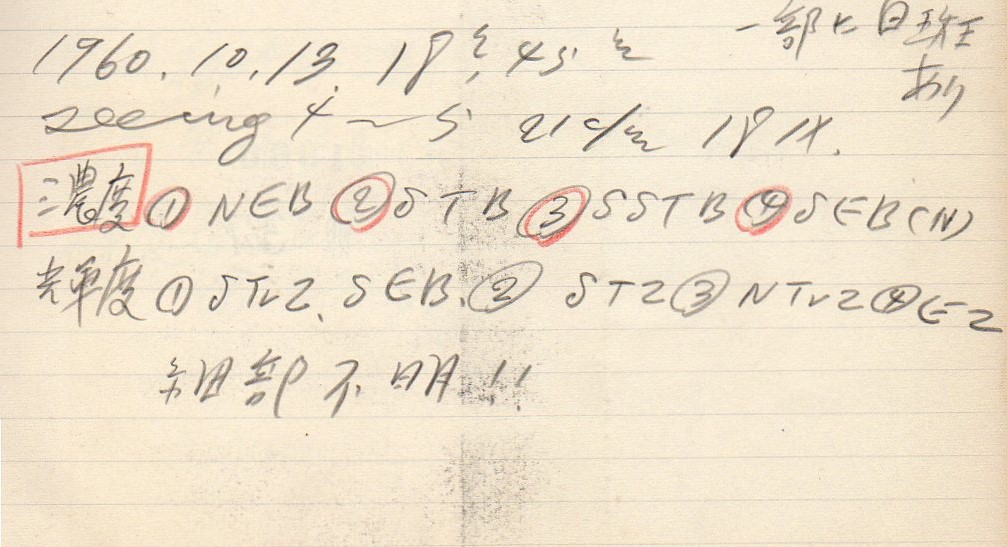 1960. 10. 13. 18 45
一部に白斑
あり
seeing 4～5 21c/m 181X.
濃度 ① NEB ② STB ③ SSTB ④ SEB(N)
輝度 ① STrZ. SEB. ② STZ ③ NTrZ ④ EZ
細部不明!!